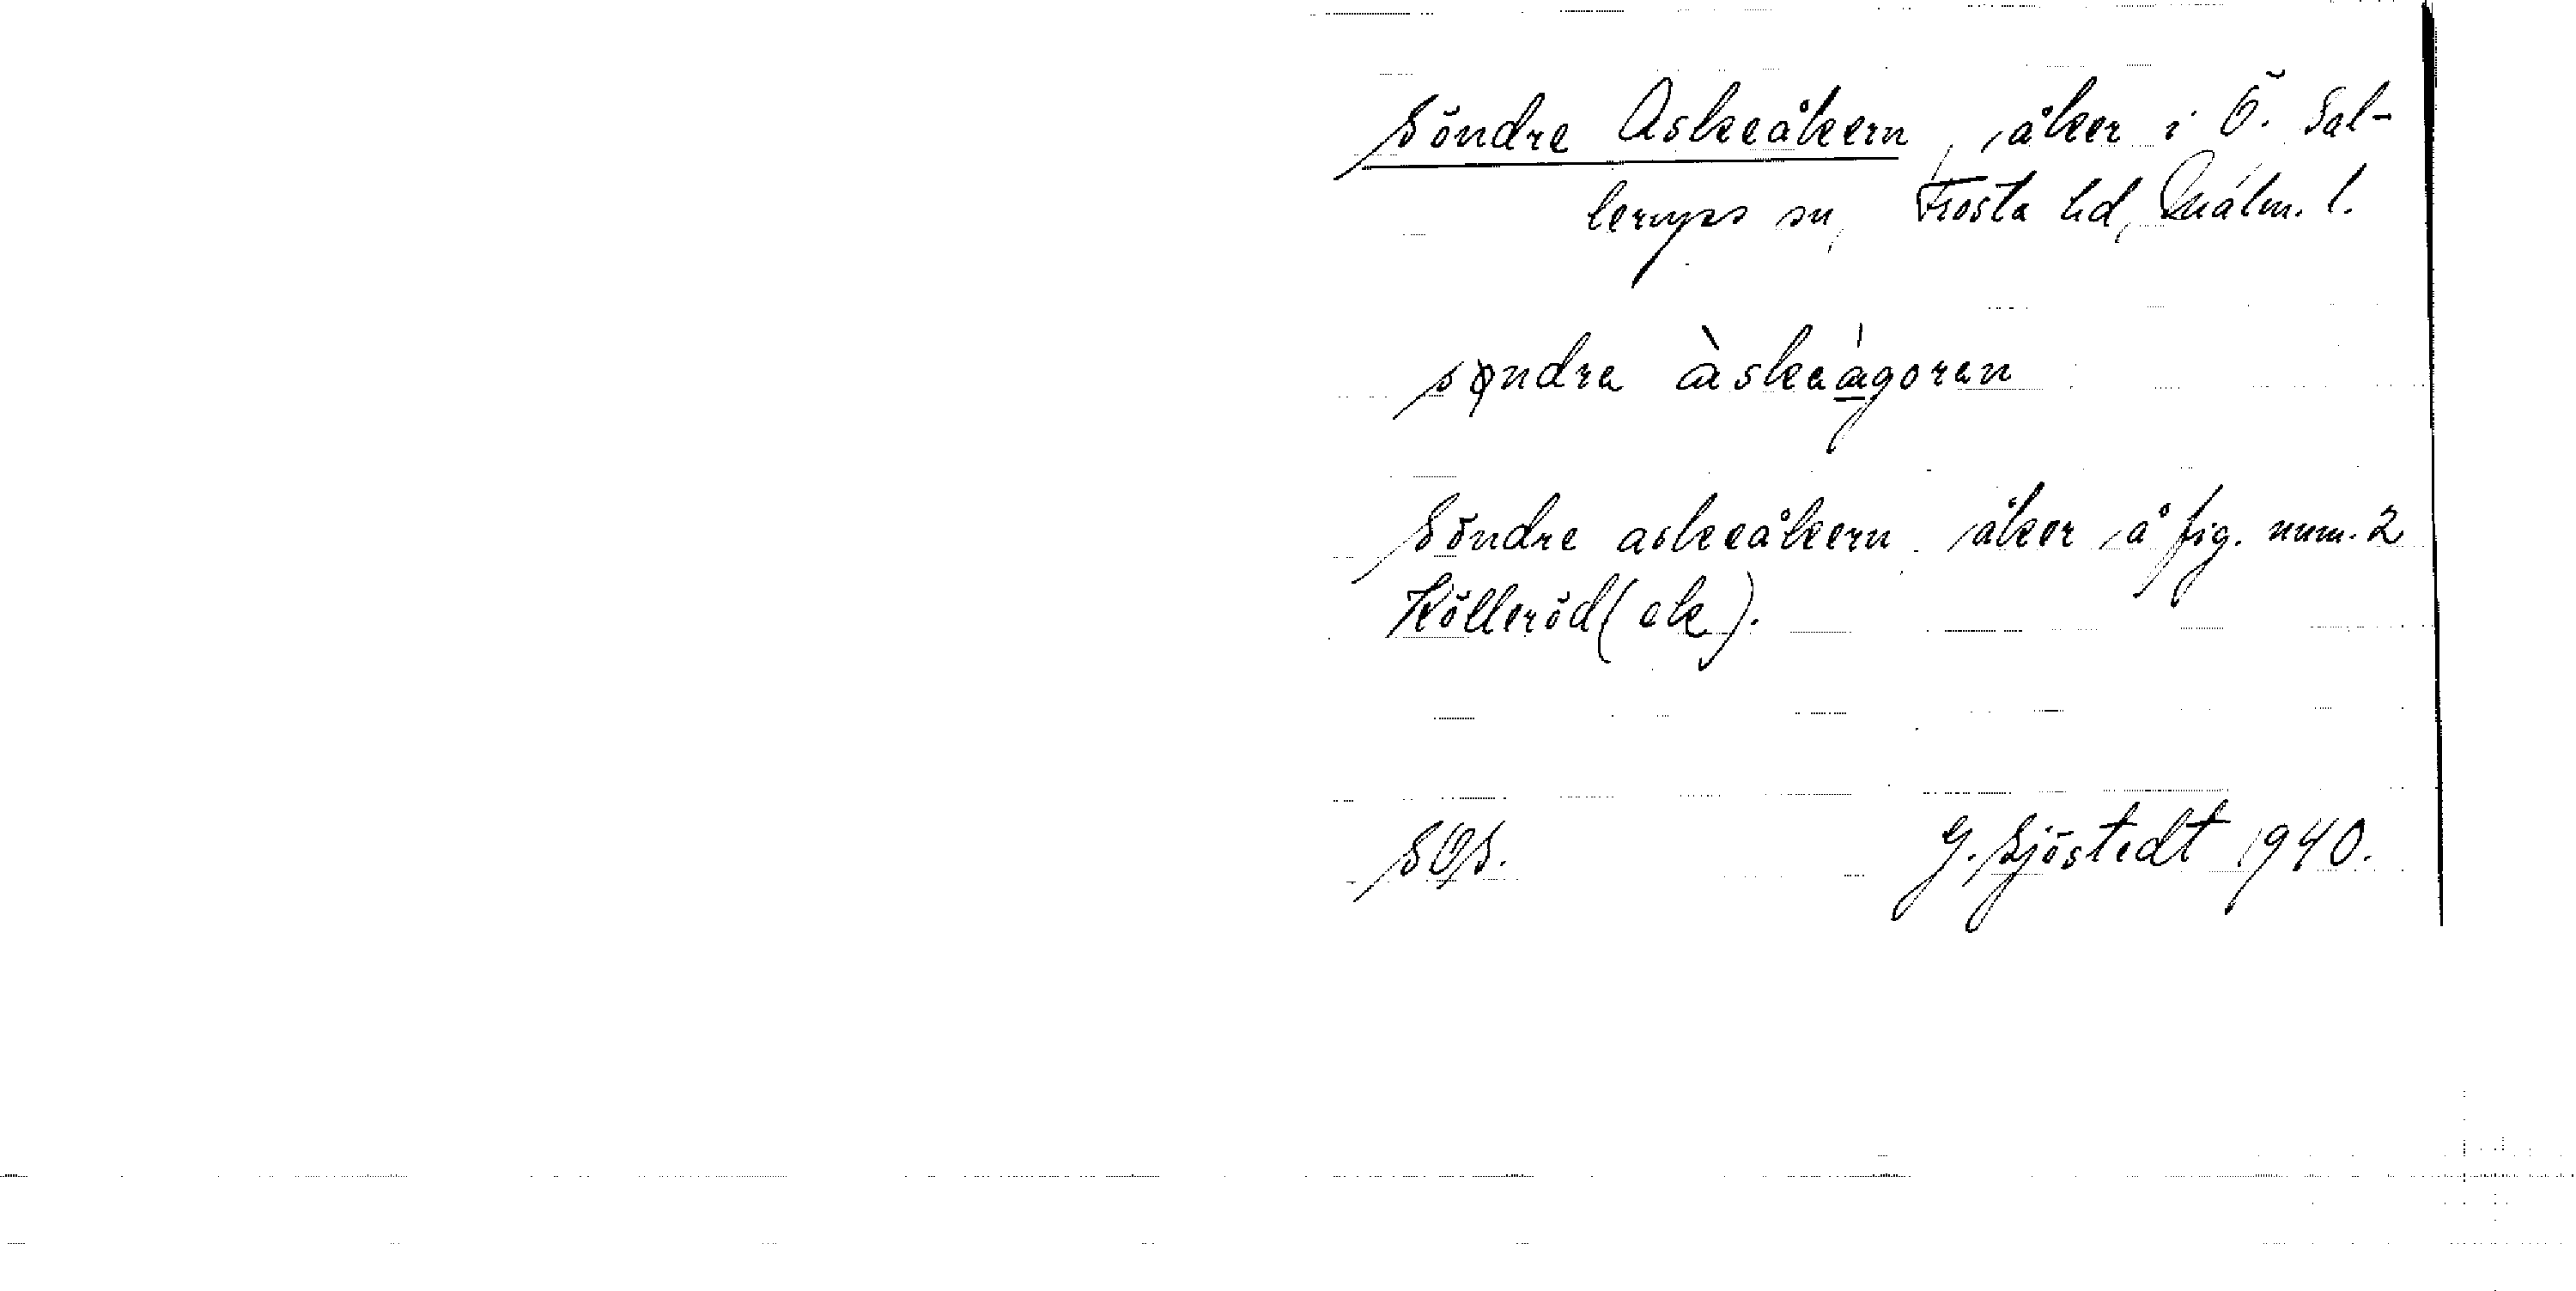 Söndre Askeåkern, åker i Ö. Sal-
lerups sn, Frosta hd, Malm. l.
søndra àskaágoran
Söndre askeåkern åker å fig. num. 2
Kölleröd (ek).
SOS. G. Sjöstedt 1940.